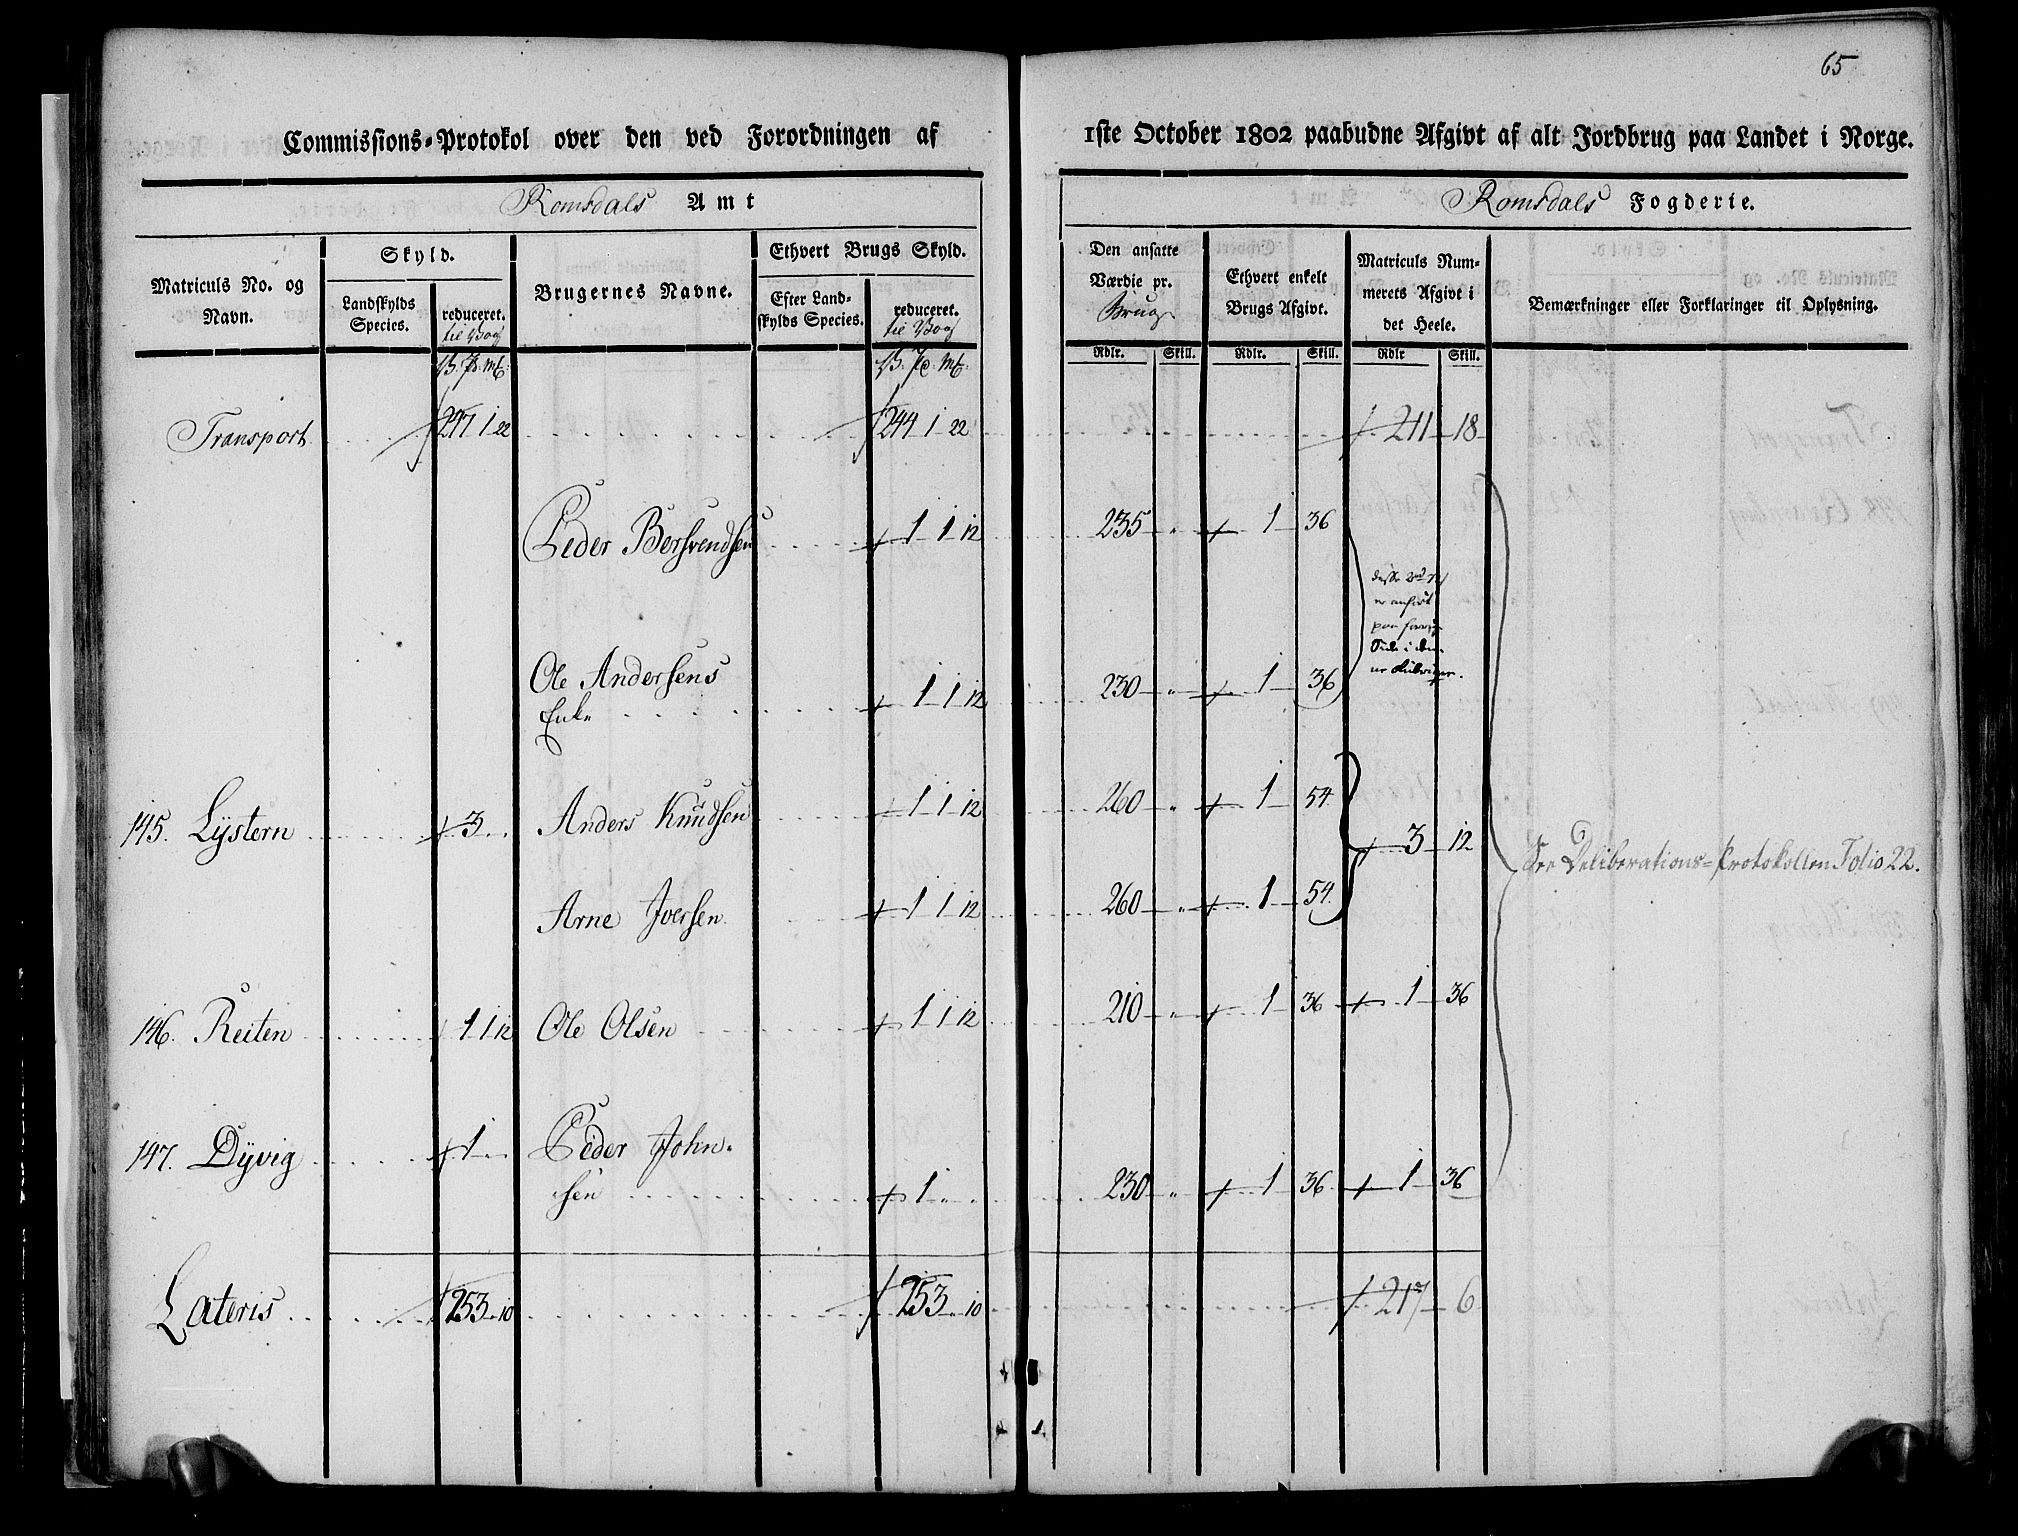 65
Commissions-Protokol over den ved Forordningen af 1ste October 1802 paabudne Afgivt af alt Jordbrug paa Landet i Norge.
Romsdals Amt
Romsdals Fogderie.
Matriculs No. og Navn.
Skyld.
Landskylds Species.
reduceret. til Vog
Brugernes Navne.
Ethvert Brugs Skyld.
Efter Landskylds Species.
reduceret. til Vog
Den ansatte Værdie pr. Brug
Ethvert enkelt Brugs Afgivt.
Matriculs Nummerets Afgivt i det Heele.
Bemærkninger eller Forklaringer til Oplysning.
Rdlr. Skill. Rdlr. Skill. Rdlr Skill.
Transport 247 1 22 244 1 22 211 18
Peder Bersvendsen 1 1 12 235 " 1 36
er anført
paa
Side i
Ole Andersens
Enke 1 1 12 230 " 1 36
145. Lÿstern 3 Anders Knudsen 1 1 12 260 " 1 54
3 12
See Deliberations-Protokollen Folio 22.
Arne Joersen 1 1 12 260 " 1 54
146. Reiten 1 1 12 Ole Olsen 1 1 12 210 " 1 36 1 36
147. Dÿvig 1 Peder John-
sen 1 230 " 1 36 1 36
Lateris 253 " 10 253 " 10 217 6